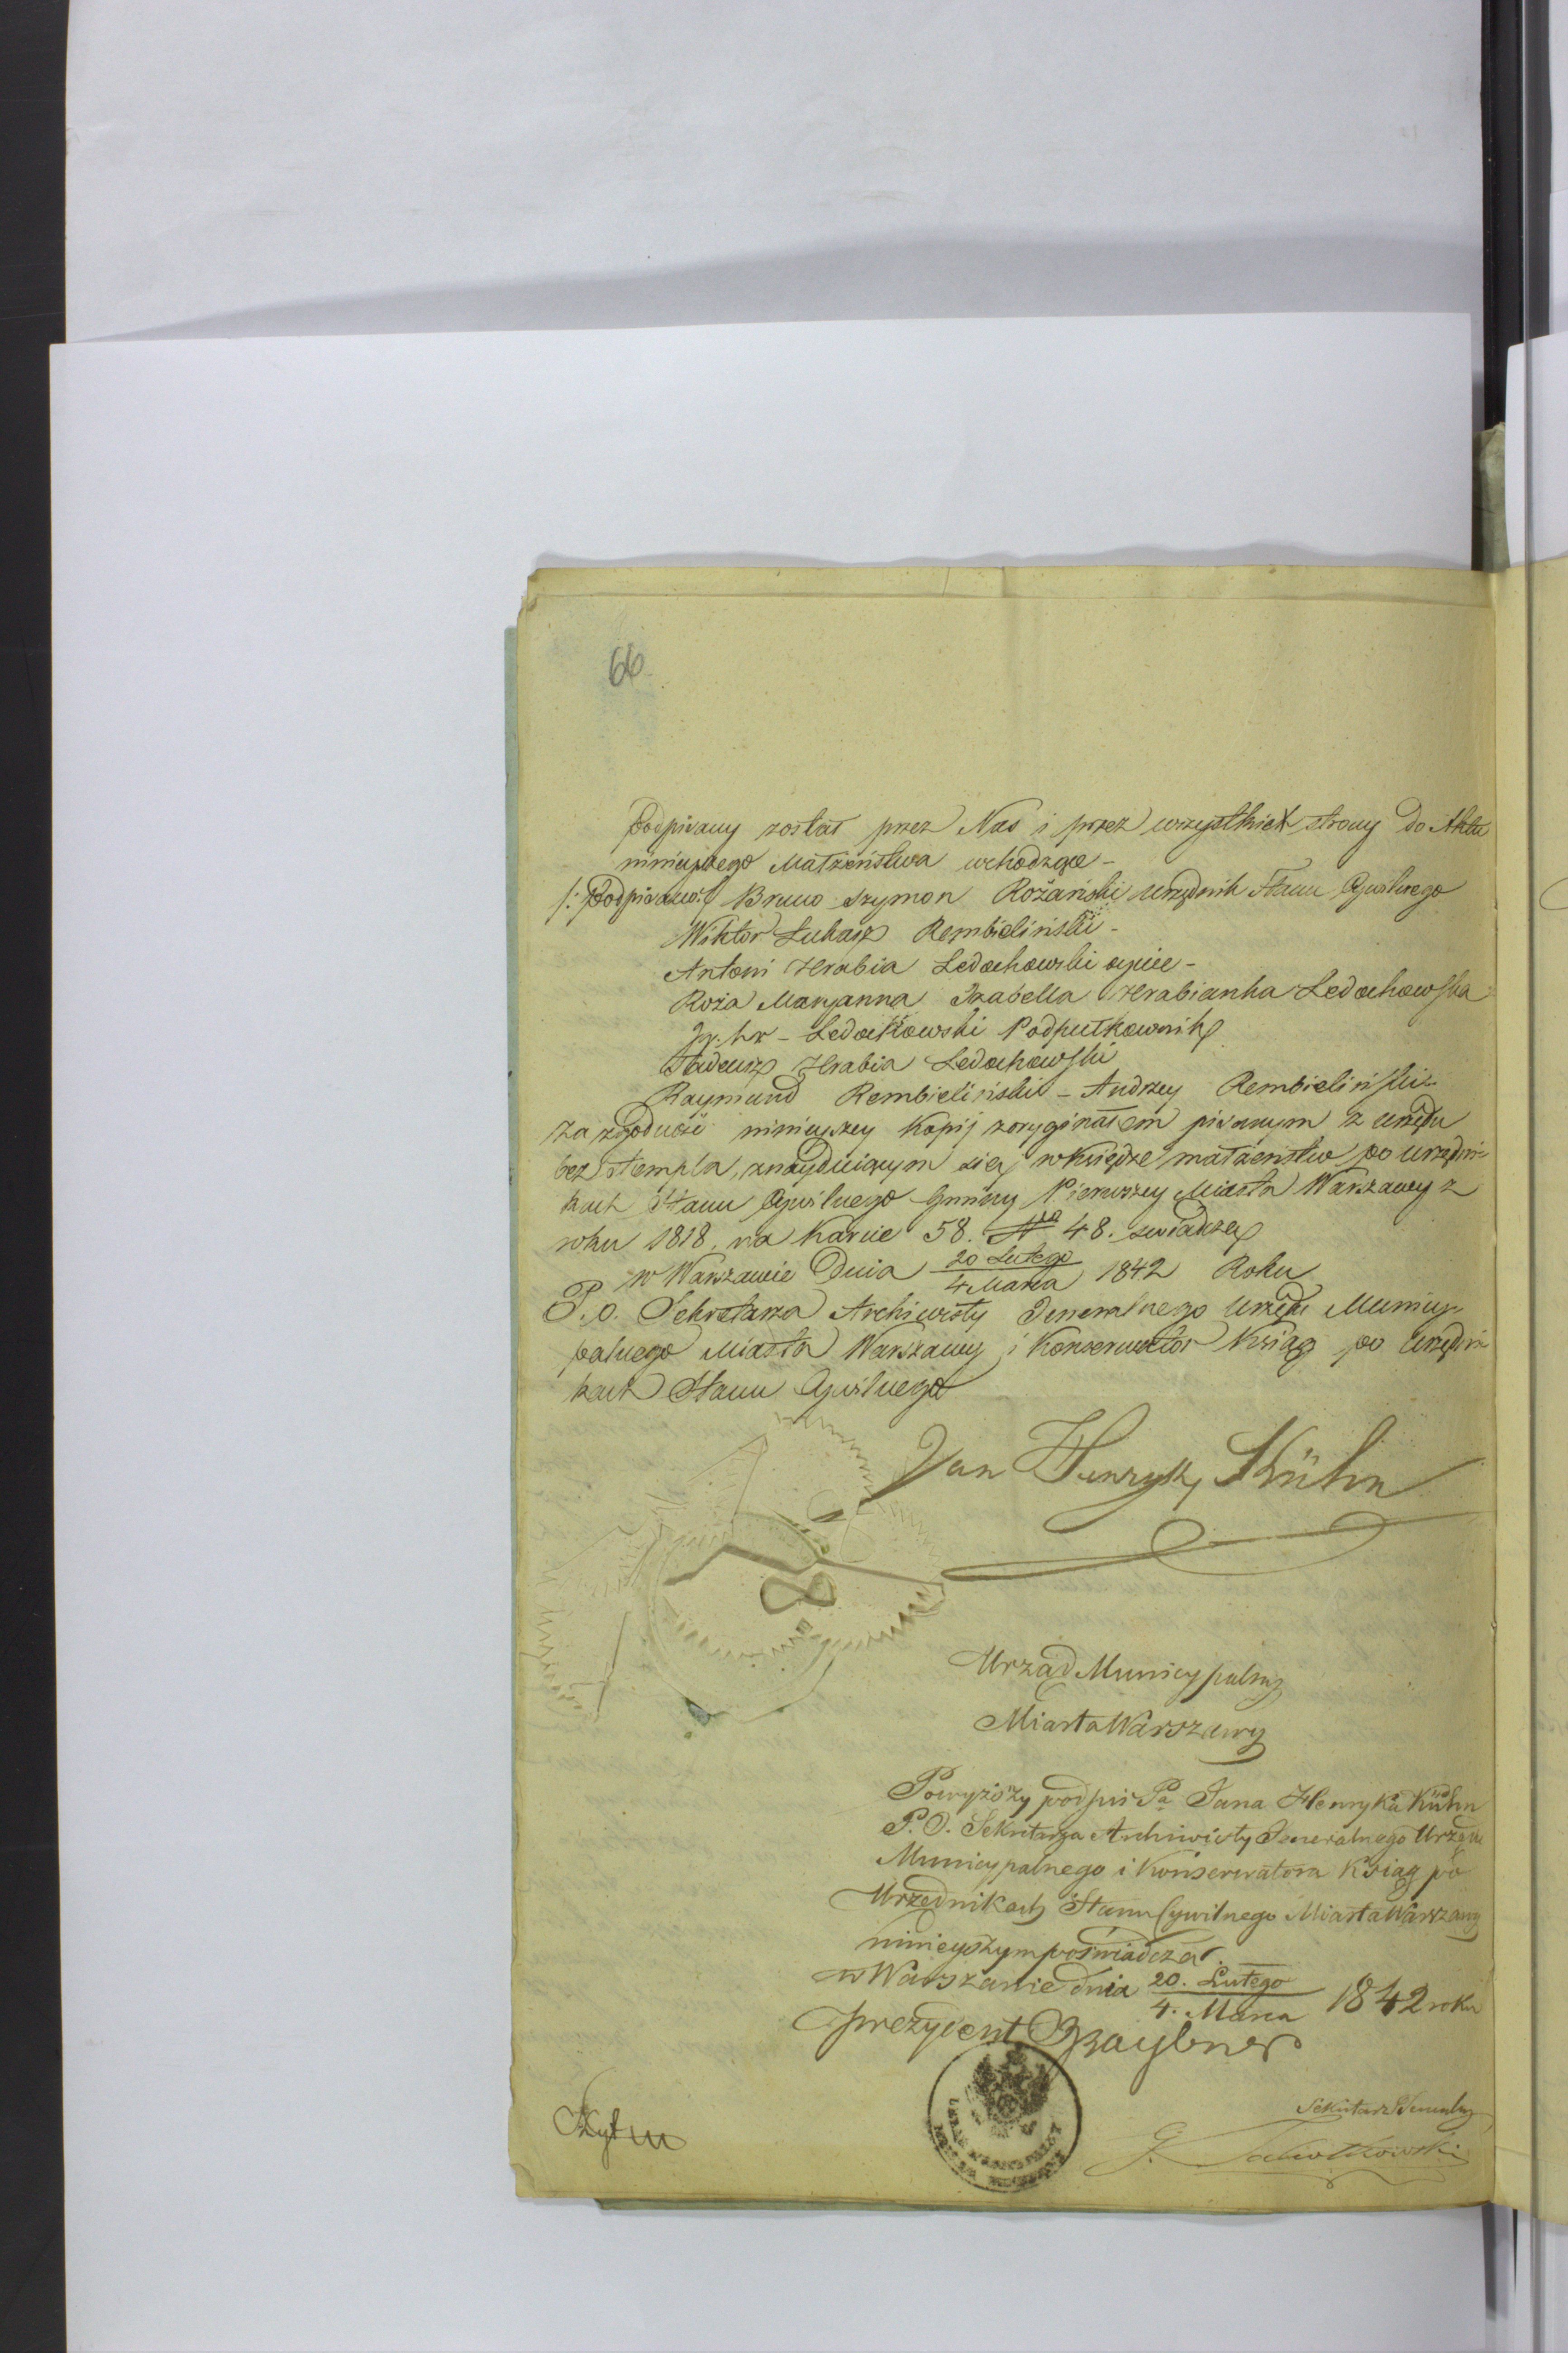 66
Podpisany został przez Nas i przez wszystkich strony do Aktu
ninieyszego Małżeństwa wchodzące –
/: Podpisano :/ Bruno Szymon Rożański Urzędnik Stanu Cywilnego
Wiktor Łukasz Rembieliński –
Antoni Hrabia Ledochowski oyciec –
Roża Maryanna Izabella Hrabianka Ledochowska
Ig. hr – Ledochowski Podpułkownik
Tadeusz Hrabia Ledochowski
Raymund Rembieliński – Andrzey Rembieliński
Za zgodność ninieyszey Kopij z oryginałem pisanym z urzędu
bez stempla, znayduiącym się w księdze małżeństw po urzędni-
kach Stanu Cywilnego Gminy Pierwszey Miasta Warszawy z
roku 1818, na Karcie 58. Nro 48. świadczę
w Warszawie Dnia 20 Lutego / 4 Marca 1842 Roku
P. O. Sekretarza Archiwisty Jeneralnego Urzędu Municy-
palnego Miasta Warszawy i Konserwator Xsiąg po Urzędni-
kach Stanu Cywilnego
Jan Henryk Kühn
Urząd Municypalny
Miasta Warszawy
Powyższy podpis Pa Jana Henryka Kühn
P. O. Sekretarza Archiwisty Jeneralnego Urzędu
Municypalnego i Konserwatora Ksiąg po
Urzędnikach Stanu Cywilnego Miasta Warszawy
ninieyszym poświadcza.
w Warszawie dnia 20. Lutego / 4. Marca 1842 roku
Prezydent Graybner
Sekretarz Jeneralny